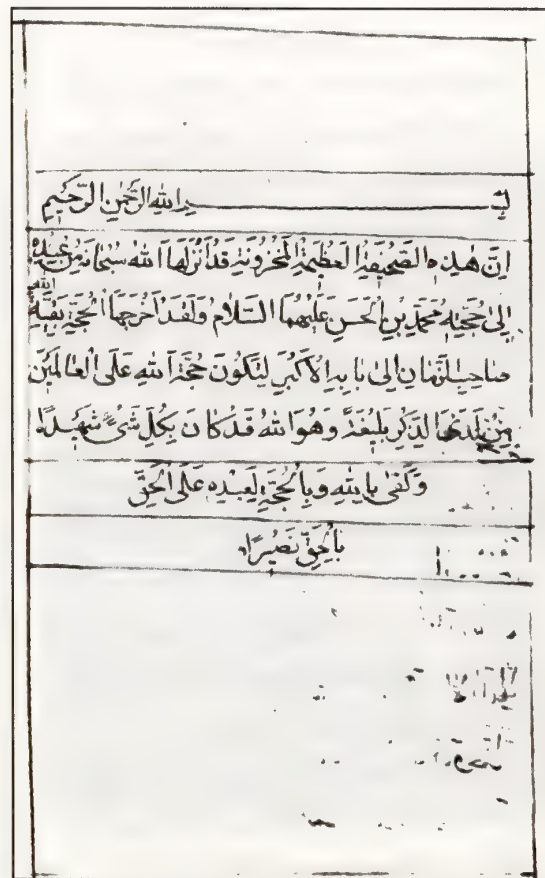 بسم الله الرحمن الرحيم
ان هذه الصحيفة العظيمة المخزونة قد انزلها الله سبحانه من عنده
الى حجته محمد بن الحسن عليهما السلام ولقد اخرجها الحجة بقية الله
صاحب الزمان الى بابه الاكبر لتكون حجة الله على العالمين
من لدى الذكر بليغة وهو الله قد كان بكل شيء شهيدا
وكفى بالله وبالحجة لعبده على الحق
بالحق نصيرا